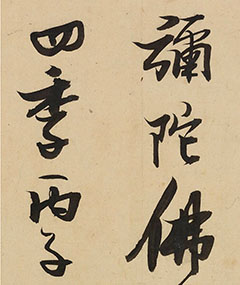 彌陀佛
四季丙子